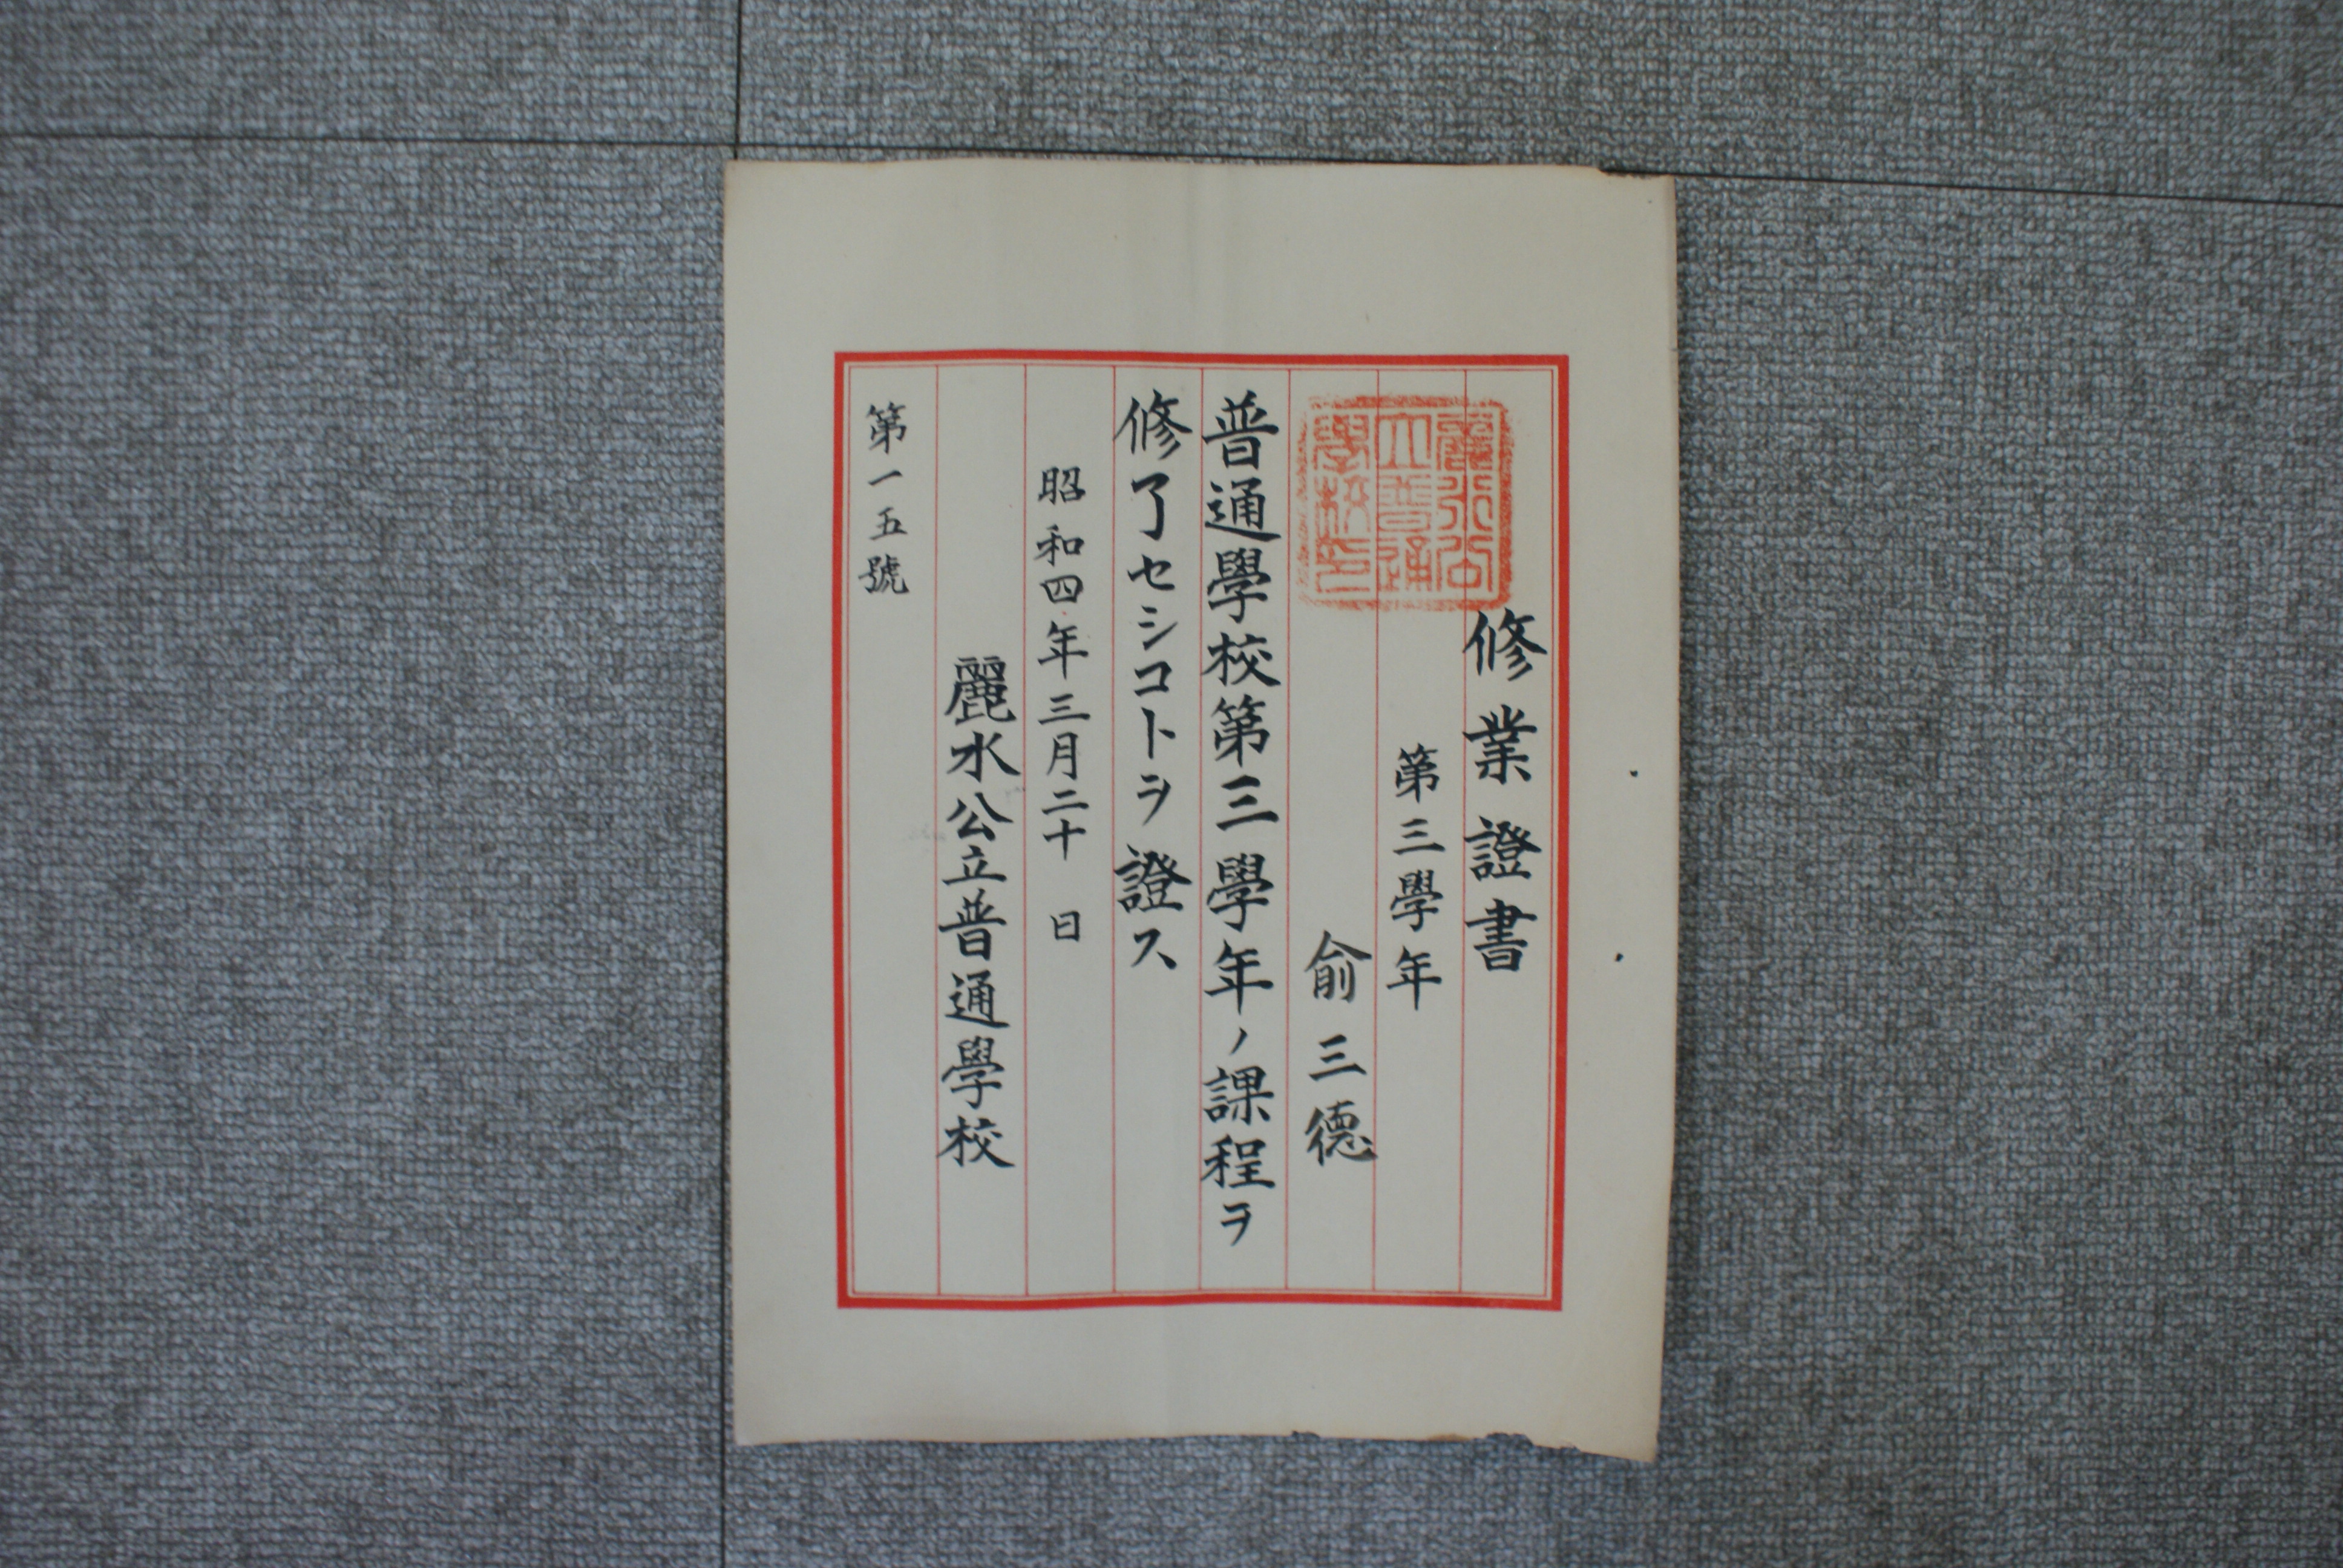 修業證書
第三學年
俞三德
普通學校第三學年ノ課程ヲ
修了セシコトヲ證ス
昭和四年三月二十日
麗水公立普通學校
第一五號
麗水公
立普通
學校印